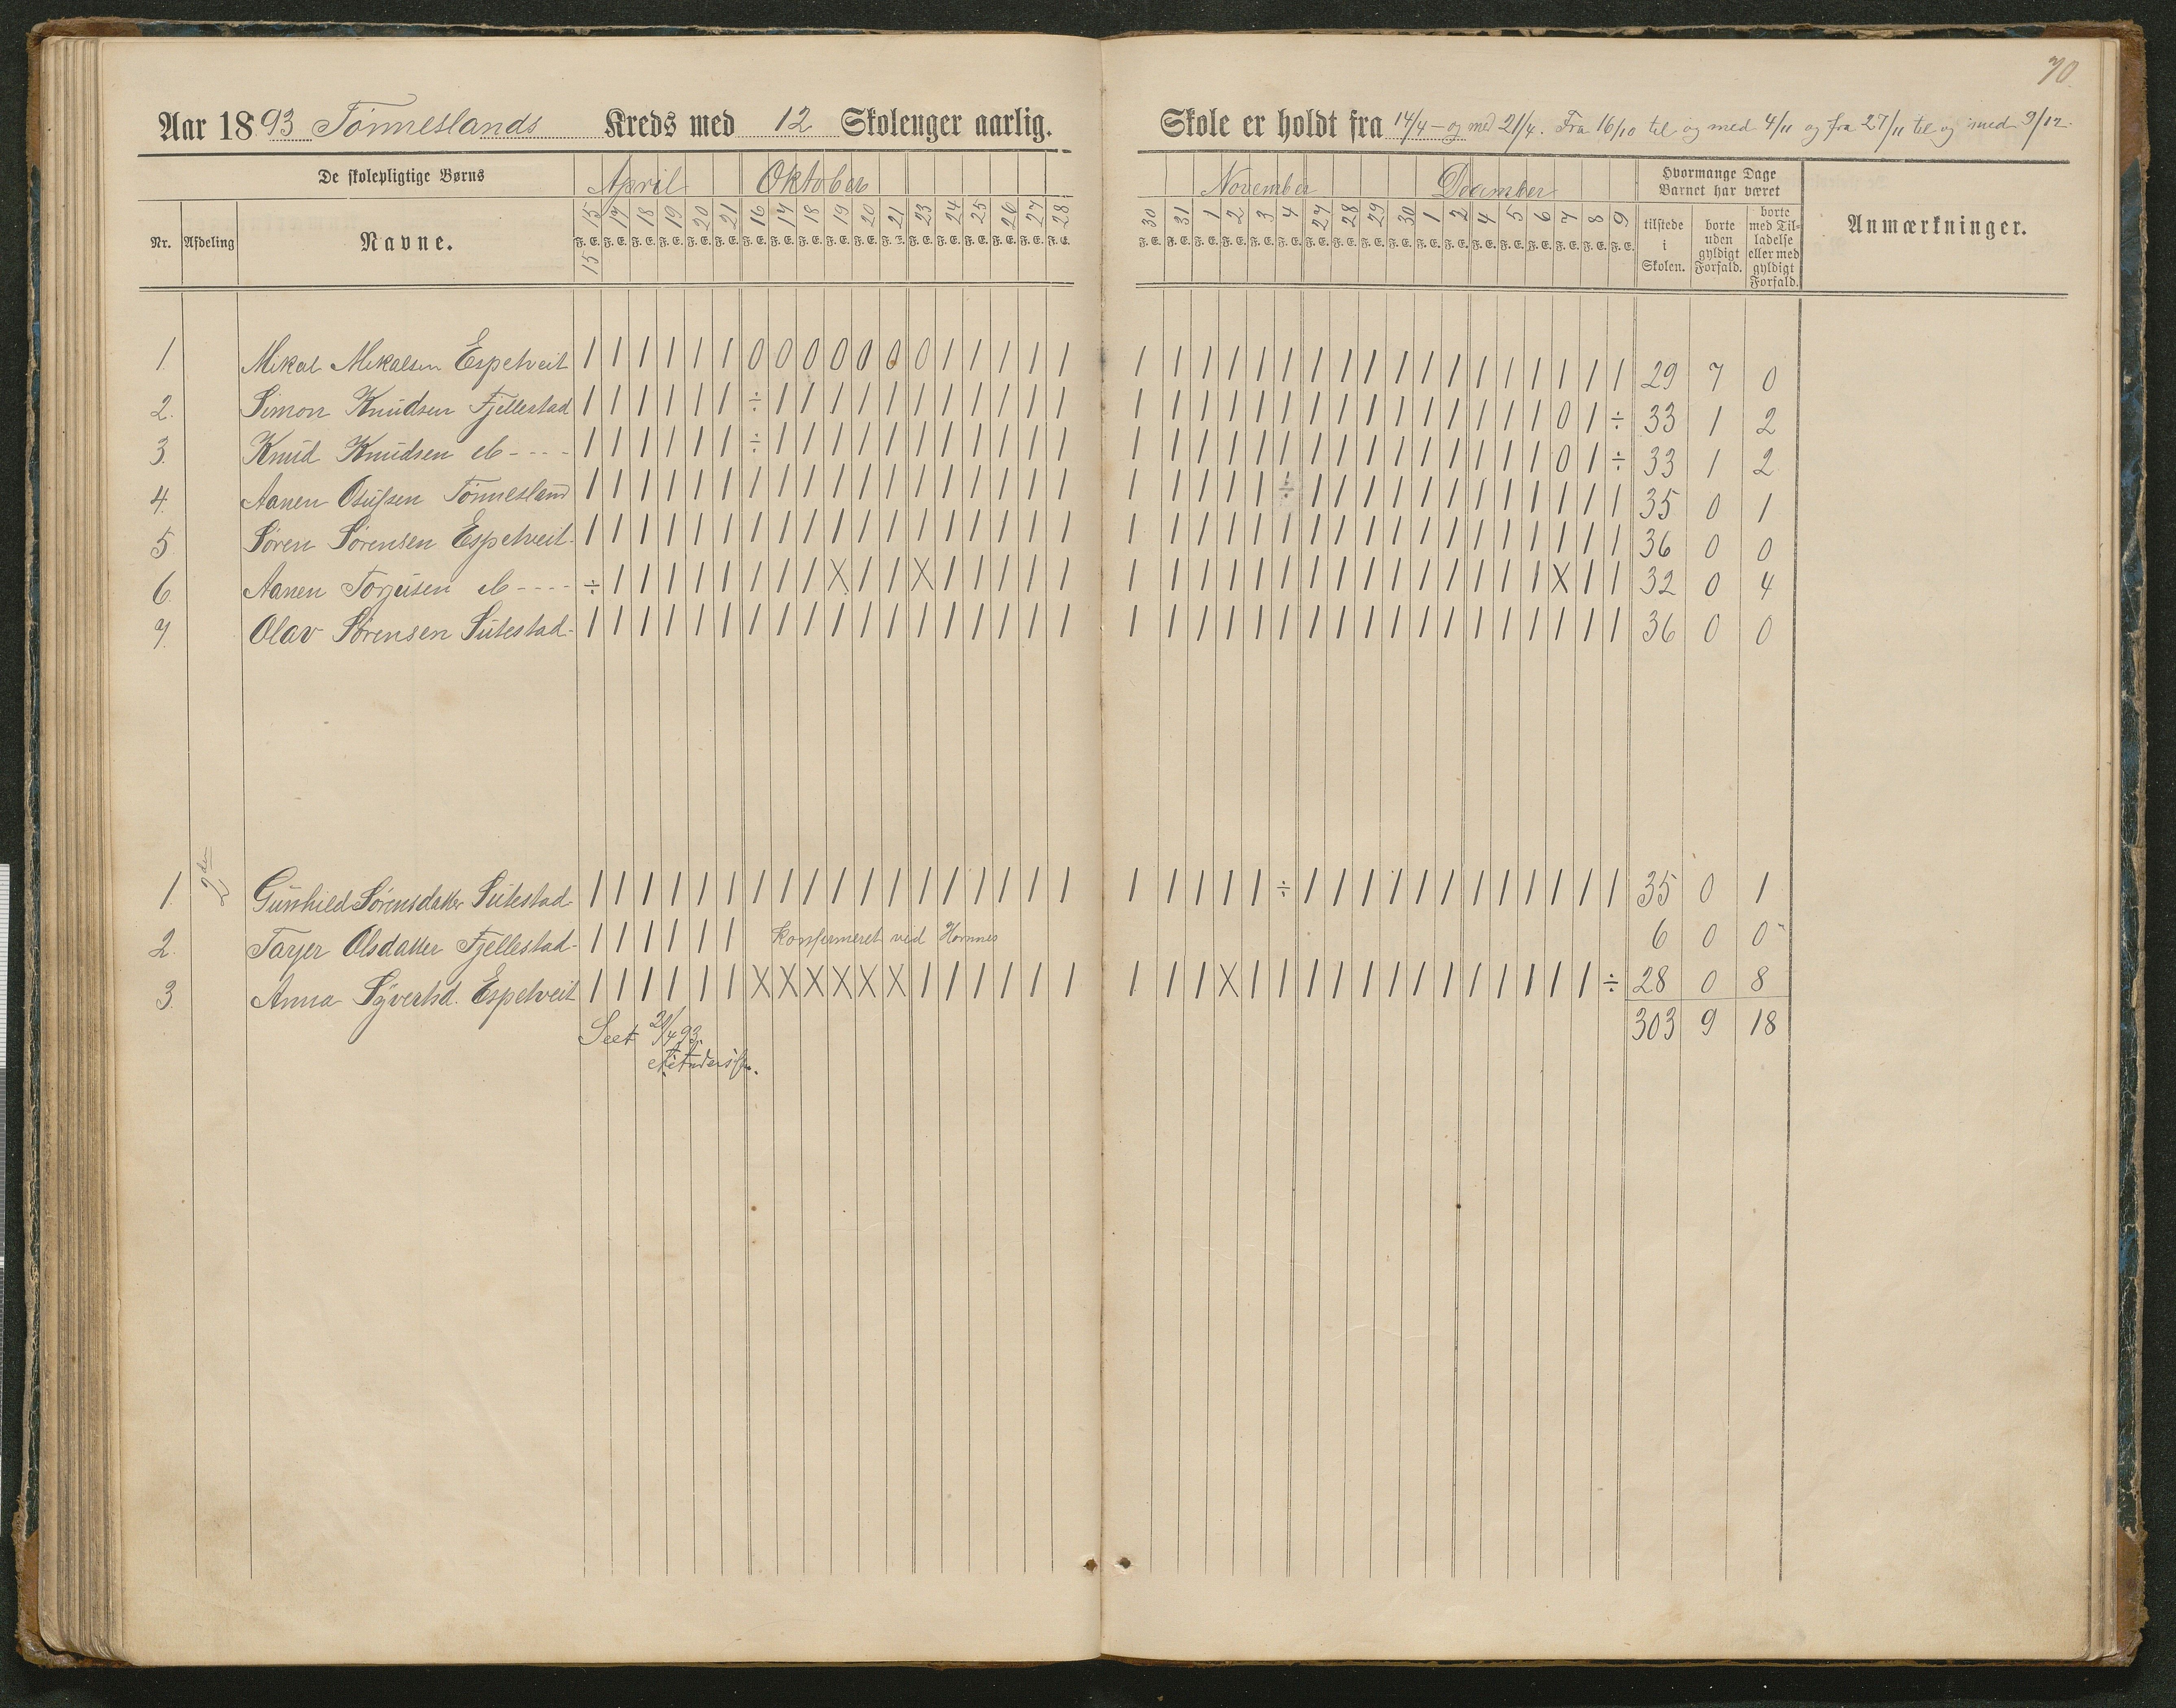 70
Aar 1893 Tönneslands Kreds med 12 Skoleuger aarlig. Skole er holdt fra 14/4 - og med 21/4. Fra 16/10 til og med 4/11 og fra 27/11 til og med 9/12.
De skolepligtige Børns April Oktober November December Hvormange Dage Barnet har været Anmærkninger.
Nr. Afdeling Navne. 15 17 18 19 20 21 16 17 18 19 20 21 23 24 25 26 27 28 30 31 1 2 3 4 27 28 29 30 1 2 4 5 6 7 8 9 tilstede i Skolen. borte uden gyldigt Forfald. borte med Tilladelse eller med gyldigt Forfald.
15 F. E. F. E. F. E. F. E. F. E. F. E. F. E. F. E. F. E. F. E. F. E. F. E. F. E. F. E. F. E. F. E. F. E. F. E. F. E. F. E. F. E. F. E. F. E. F. E. F. E. F. E. F. E. F. E. F. E. F. E. F. E. F. E. F. E. F. E. F. E. F. E.
1. Mikal Mikalsen Espetveit | | | | | | 0 0 0 0 0 0 0 | | | | | | | | | | | | | | | | | | | | | | | 29 7 0
2. Simon Knudsen Fjellestad | | | | | | ÷ | | | | | | | | | | | | | | | | | | | | | | | | | | 0 | ÷ 33 1 2
3. Knud Knudsen ib - - - - | | | | | | ÷ | | | | | | | | | | | | | | | | | | | | | | | | | | 0 | ÷ 33 1 2
4. Aanen Osufsen Tönnesland | | | | | | | | | | | | | | | | | | | | | | | ÷ | | | | | | | | | | | | 35 0 1
5 Søren Sørensen Espetveit - | | | | | | | | | | | | | | | | | | | | | | | | | | | | | | | | | | | | 36 0 0
6. Aanen Torjusen ib - - - - ÷ | | | | | | | | X | | X | | | | | | | | | | | | | | | | | | | | X | | 32 0 4
7. Olav Sørensen Sutestad - | | | | | | | | | | | | | | | | | | | | | | | | | | | | | | | | | | | | 36 0 0
1. 2den Gunhild Sørensdatter Sutestad - | | | | | | | | | | | | | | | | | | | | | | | ÷ | | | | | | | | | | | | 35 0 1
2. Tarjer Olsdatter Fjellestad - | | | | | | Konfirmeret ved Hornnes 6 0 0
3. Anna Syvertsd. Espetveit | | | | | | X X X X X X | | | | | | | | | X | | | | | | | | | | | | | ÷ 28 0 8
Seet 21/4 93. 303 9 18